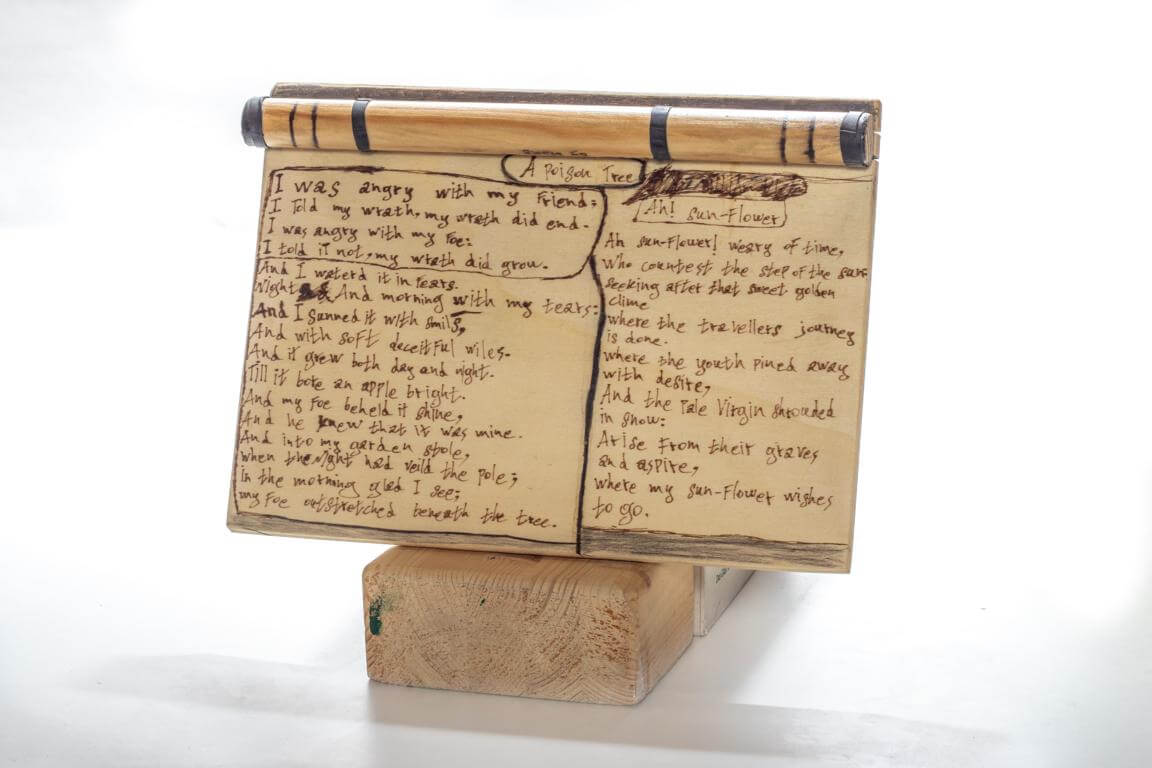 A Poison Tree
I was angry with my Friend:
I Told my wrath, my wrath did end.
I was angry with my Foe:
I told it not, my wrath did grow.
And I waterd it in Fears.
Night And morning with my tears:
And I sunned it with smils,
And with soft deceitful wiles.
And it grew both day and night.
Till it bore an apple bright.
And my Foe beheld it shine,
And he knew that it was mine.
And into my garden stole,
when the Night had veild the pole;
in the morning glad I see;
my Foe outstretched beneath the tree.
Ah! Sun-Flower
Ah Sun-Flower! weary of time,
Who countest the step of the sun
seeking after that sweet golden
clime
where the travellers journey
is done.
where the youth pined away
with desire,
And the Pale Virgin shrouded
in snow:
Arise From their graves
and aspire,
where my sun-Flower wishes
to go.